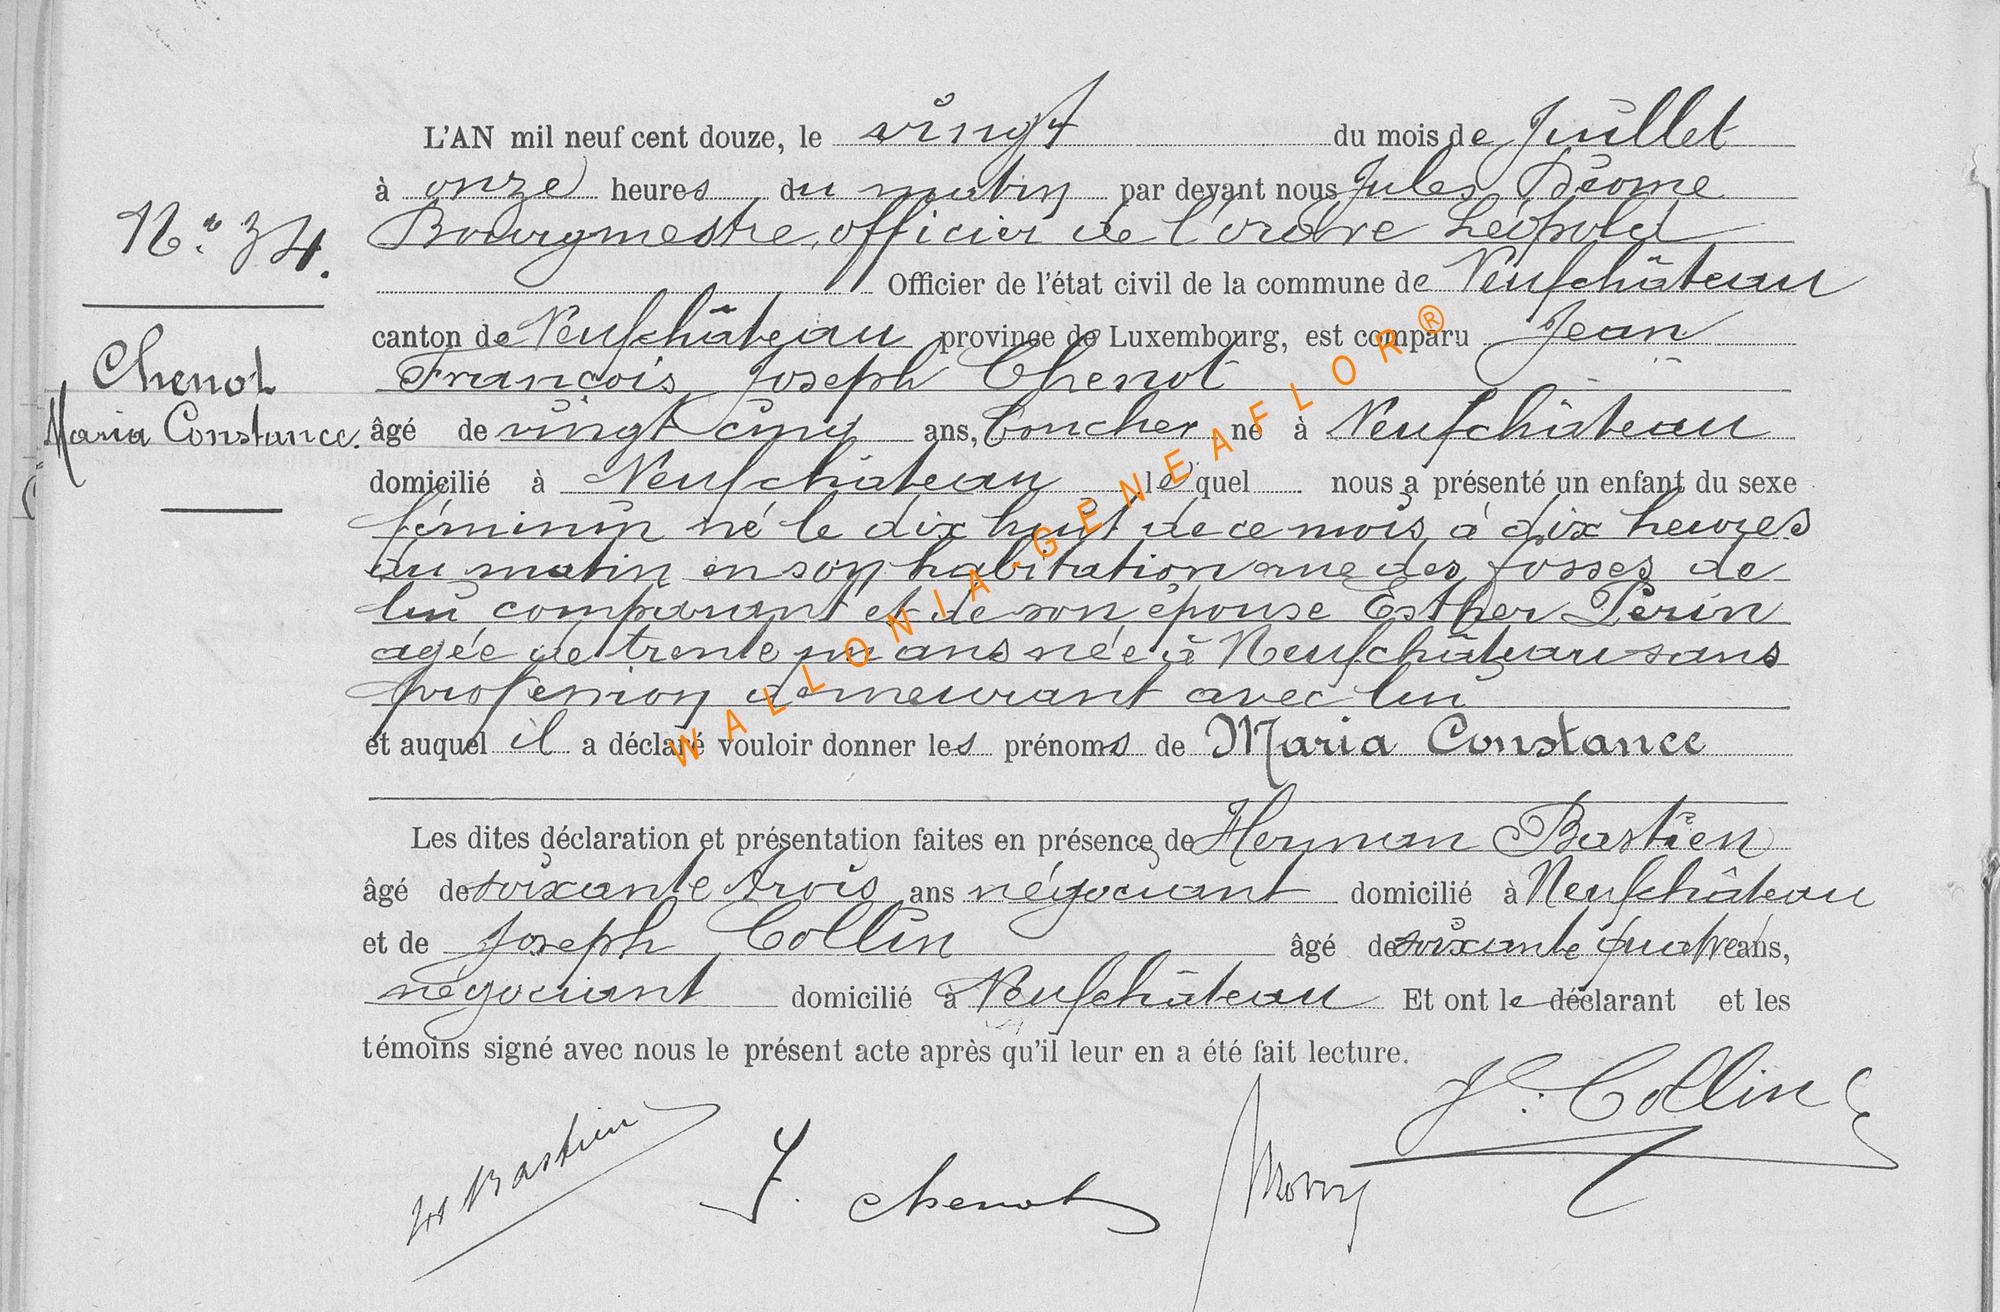 L'AN mil neuf cent douze, le vingt du mois de Juillet
à onze heures du matin par devant nous Jules
Bourgmestre, officier de l'ordre Léopold
N.º 34.
Officier de l'état civil de la commune de Neufchâteau
canton de Neufchâteau province de Luxembourg, est comparu Jean
François Joseph Chenot
Chenot
Maria Constance.
âgé de vingt cinq ans, né à Neufchâteau
domicilié à Neufchâteau lequel nous a présenté un enfant du sexe
féminin né le dix huit de ce mois à dix heures
du matin en son habitation rue des fosses de
lui comparant et de son épouse Esther Perin
agée de trente un ans née à Neufchâteau sans
profession demeurant avec lui
et auquel il a déclaré vouloir donner les prénoms de Maria Constance
Les dites déclaration et présentation faites en présence de Herman Bastien
âgé de soixante trois ans négociant domicilié à Neufchâteau
et de Joseph Collin âgé de soixante quatre ans,
négociant domicilié à Neufchâteau Et ont le déclarant et les
témoins signé avec nous le présent acte après qu'il leur en a été fait lecture.
J. Collin
Bastien
J. Chenot
WALLONIA-GENEAFLOR®